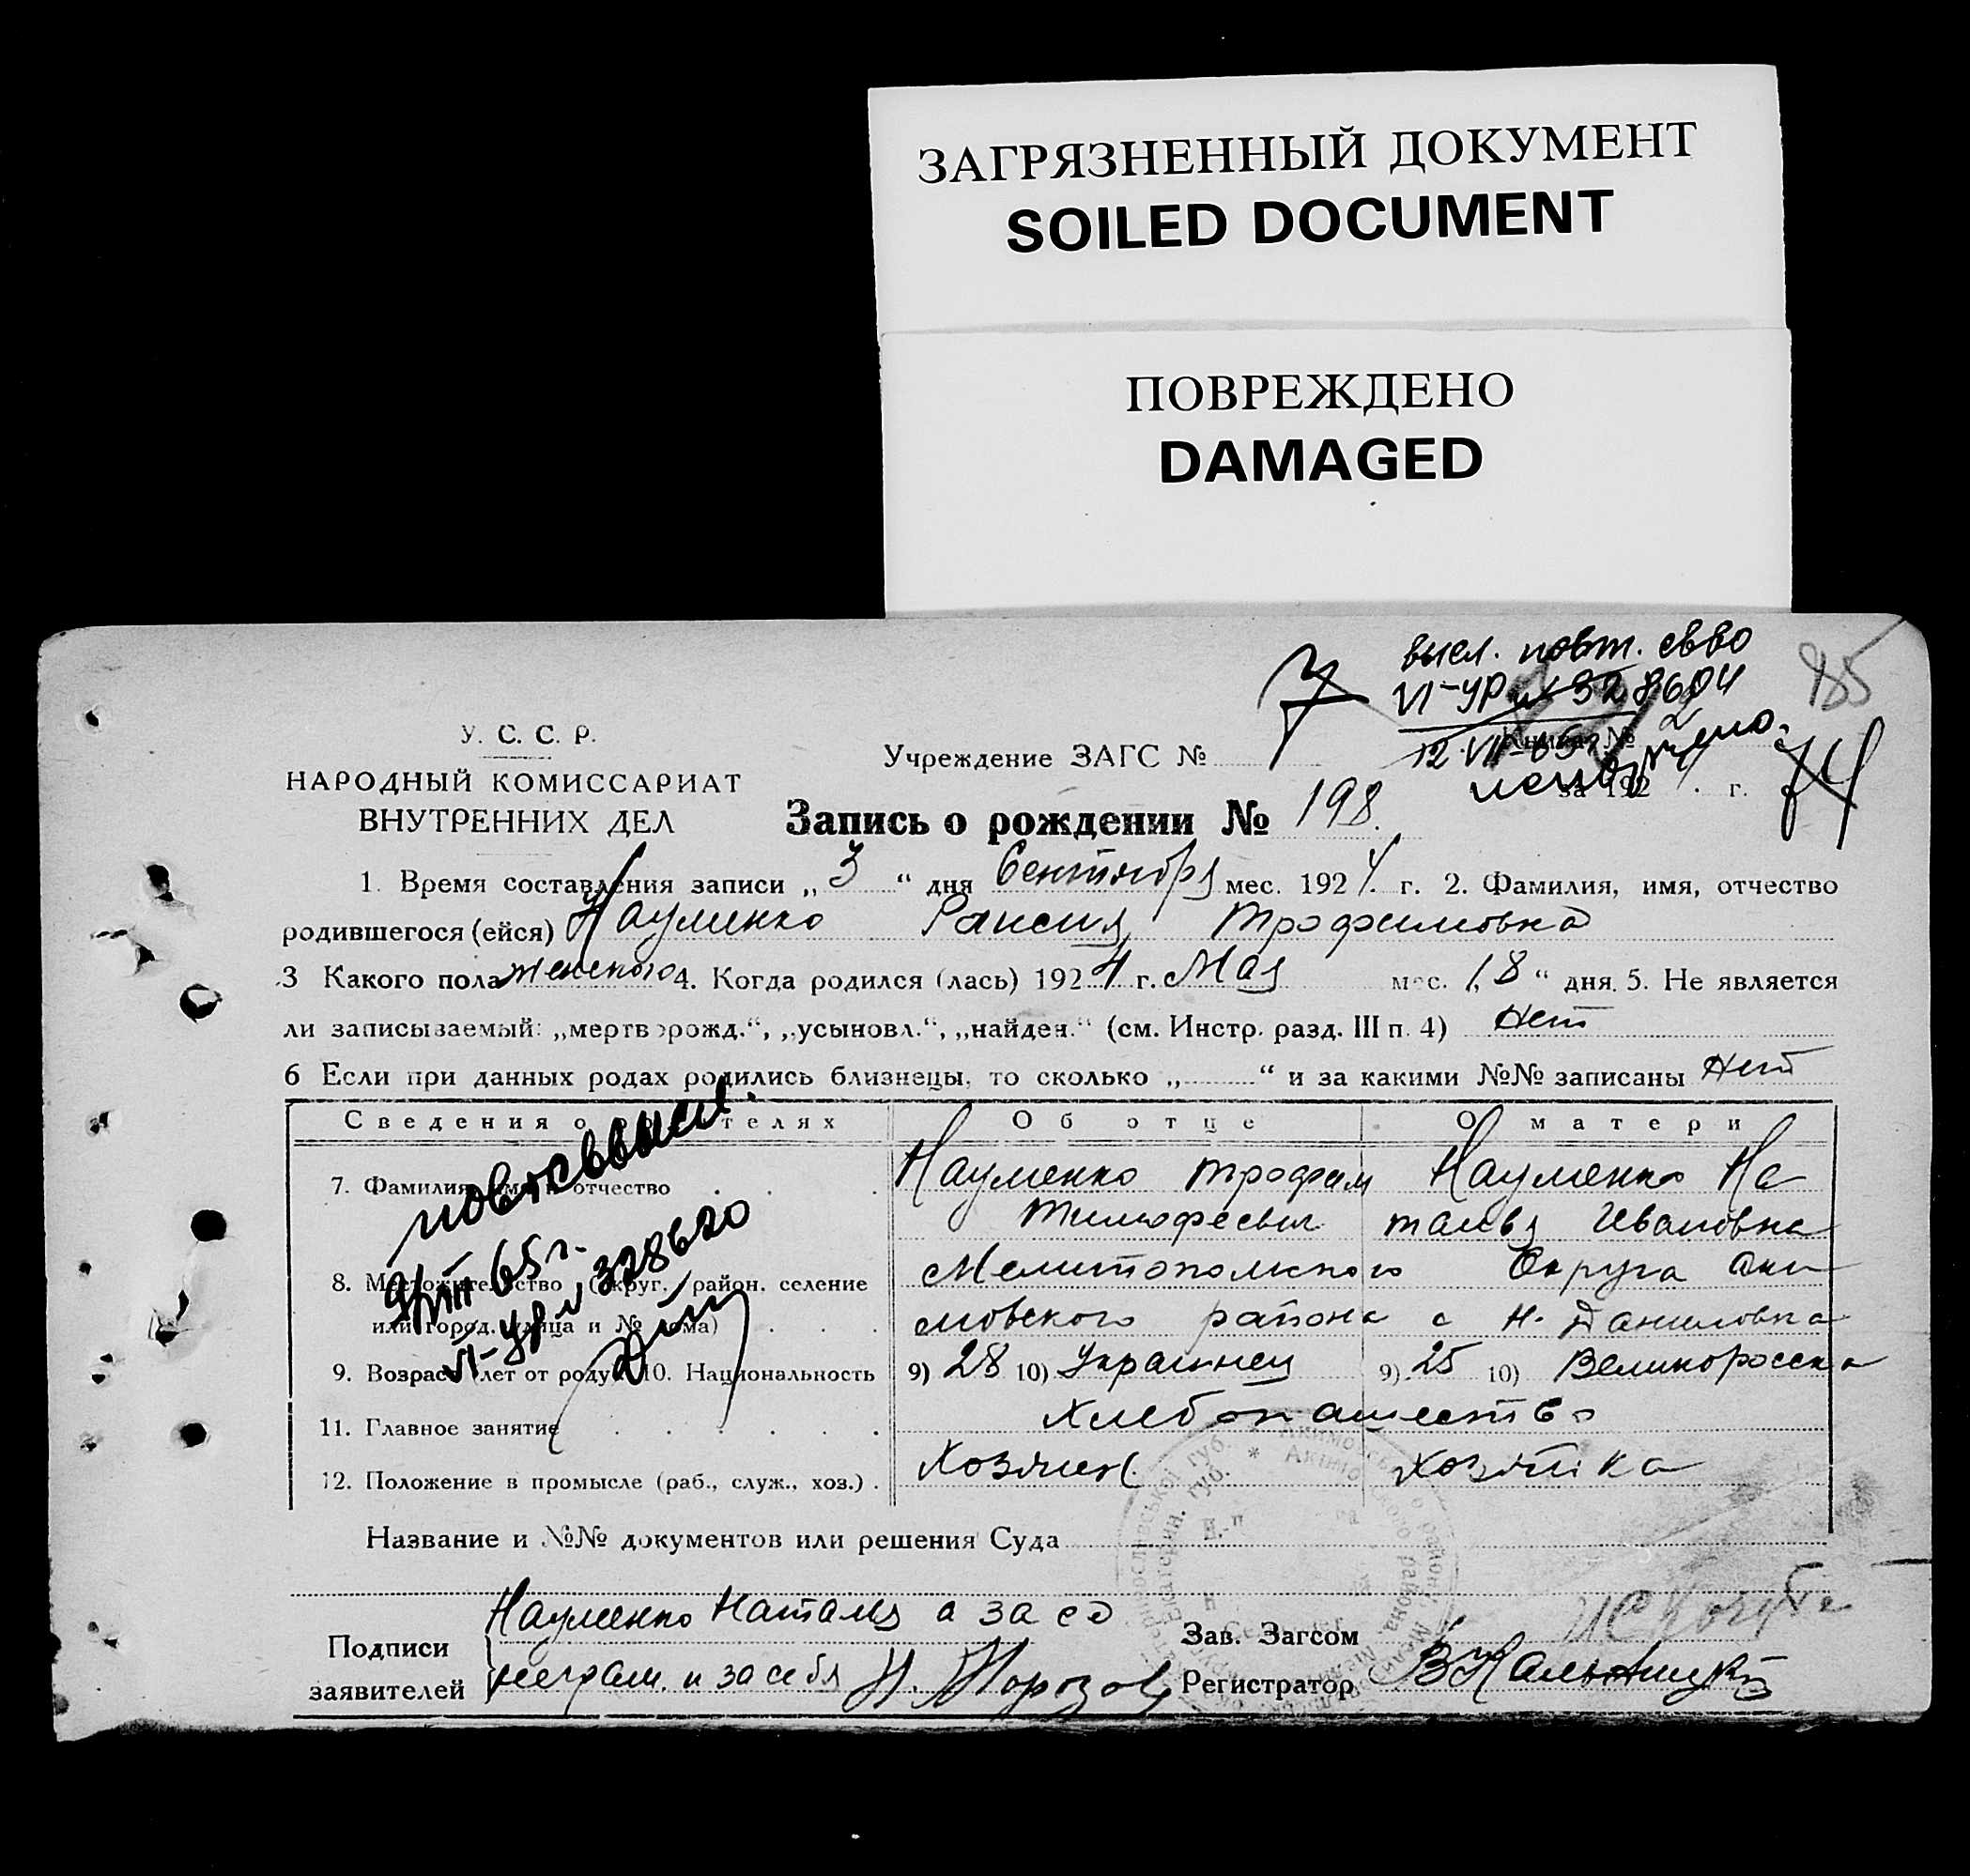 ЗАГРЯЗНЕННЫЙ ДОКУМЕНТ
SOILED DOCUMENT
ПОВРЕЖДЕНО
DAMAGED
высл. повт. свво
VI-УР № 328604
12 VII-65
85
74
У. С. С. Р.
НАРОДНЫЙ КОМИССАРИАТ
ВНУТРЕННИХ ДЕЛ
Учреждение ЗАГС № 7
Книга № 2
за 192 г.
Запись о рождении № 198.
1. Время составления записи „ 3 “ дня Сентября мес. 1924 г. 2. Фамилия, имя, отчество
родившегося (ейся) Науменко Раисия Трофимовна
3 Какого пола женского 4. Когда родился (лась) 1924 г. Мая мес. 18 “ дня. 5. Не является
ли записываемый: „мертворожд.“, „усыновл.“, „найден.“ (см. Инстр. разд. III п. 4) Нет
6 Если при данных родах родились близнецы, то сколько „ “ и за какими №№ записаны Нет
Сведения о родителях Об отце О матери
7. Фамилия, имя и отчество Науменко Трофим Науменко На
Тимофеевич талья Ивановна
8. Местожительство (округ, район, селение Мелитопольского Округа Аки
или город, улица и № дома) мовского района с Н. Даниловка
9. Возраст лет от роду 10. Национальность 9) 28 10) Украинец 9) 25 10) Великоросска
11. Главное занятие Хлебопашество
12. Положение в промысле (раб., служ., хоз.) Хозяин Хозяйка
повт св высл.
9/VIII 65 г.
VI-УР № 328620
Название и №№ документов или решения Суда
Подписи
заявителей
Науменко Наталья а за ее
неграм. и за себя Н. Морозов
Зав. Загсом
Регистратор